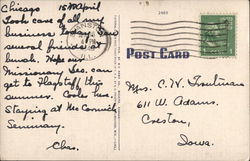 Chicago 15 April
Took care of all my
business today. Saw
several friends at
lunch. Hope our
Missionary Sec. can
get to Flagstaff this
summer. Cooler here.
Staying at McCormick
Seminary.
Chas.
2403
POST CARD
Mrs. C. W. Troutman
611 W. Adams.
Creston,
Iowa.